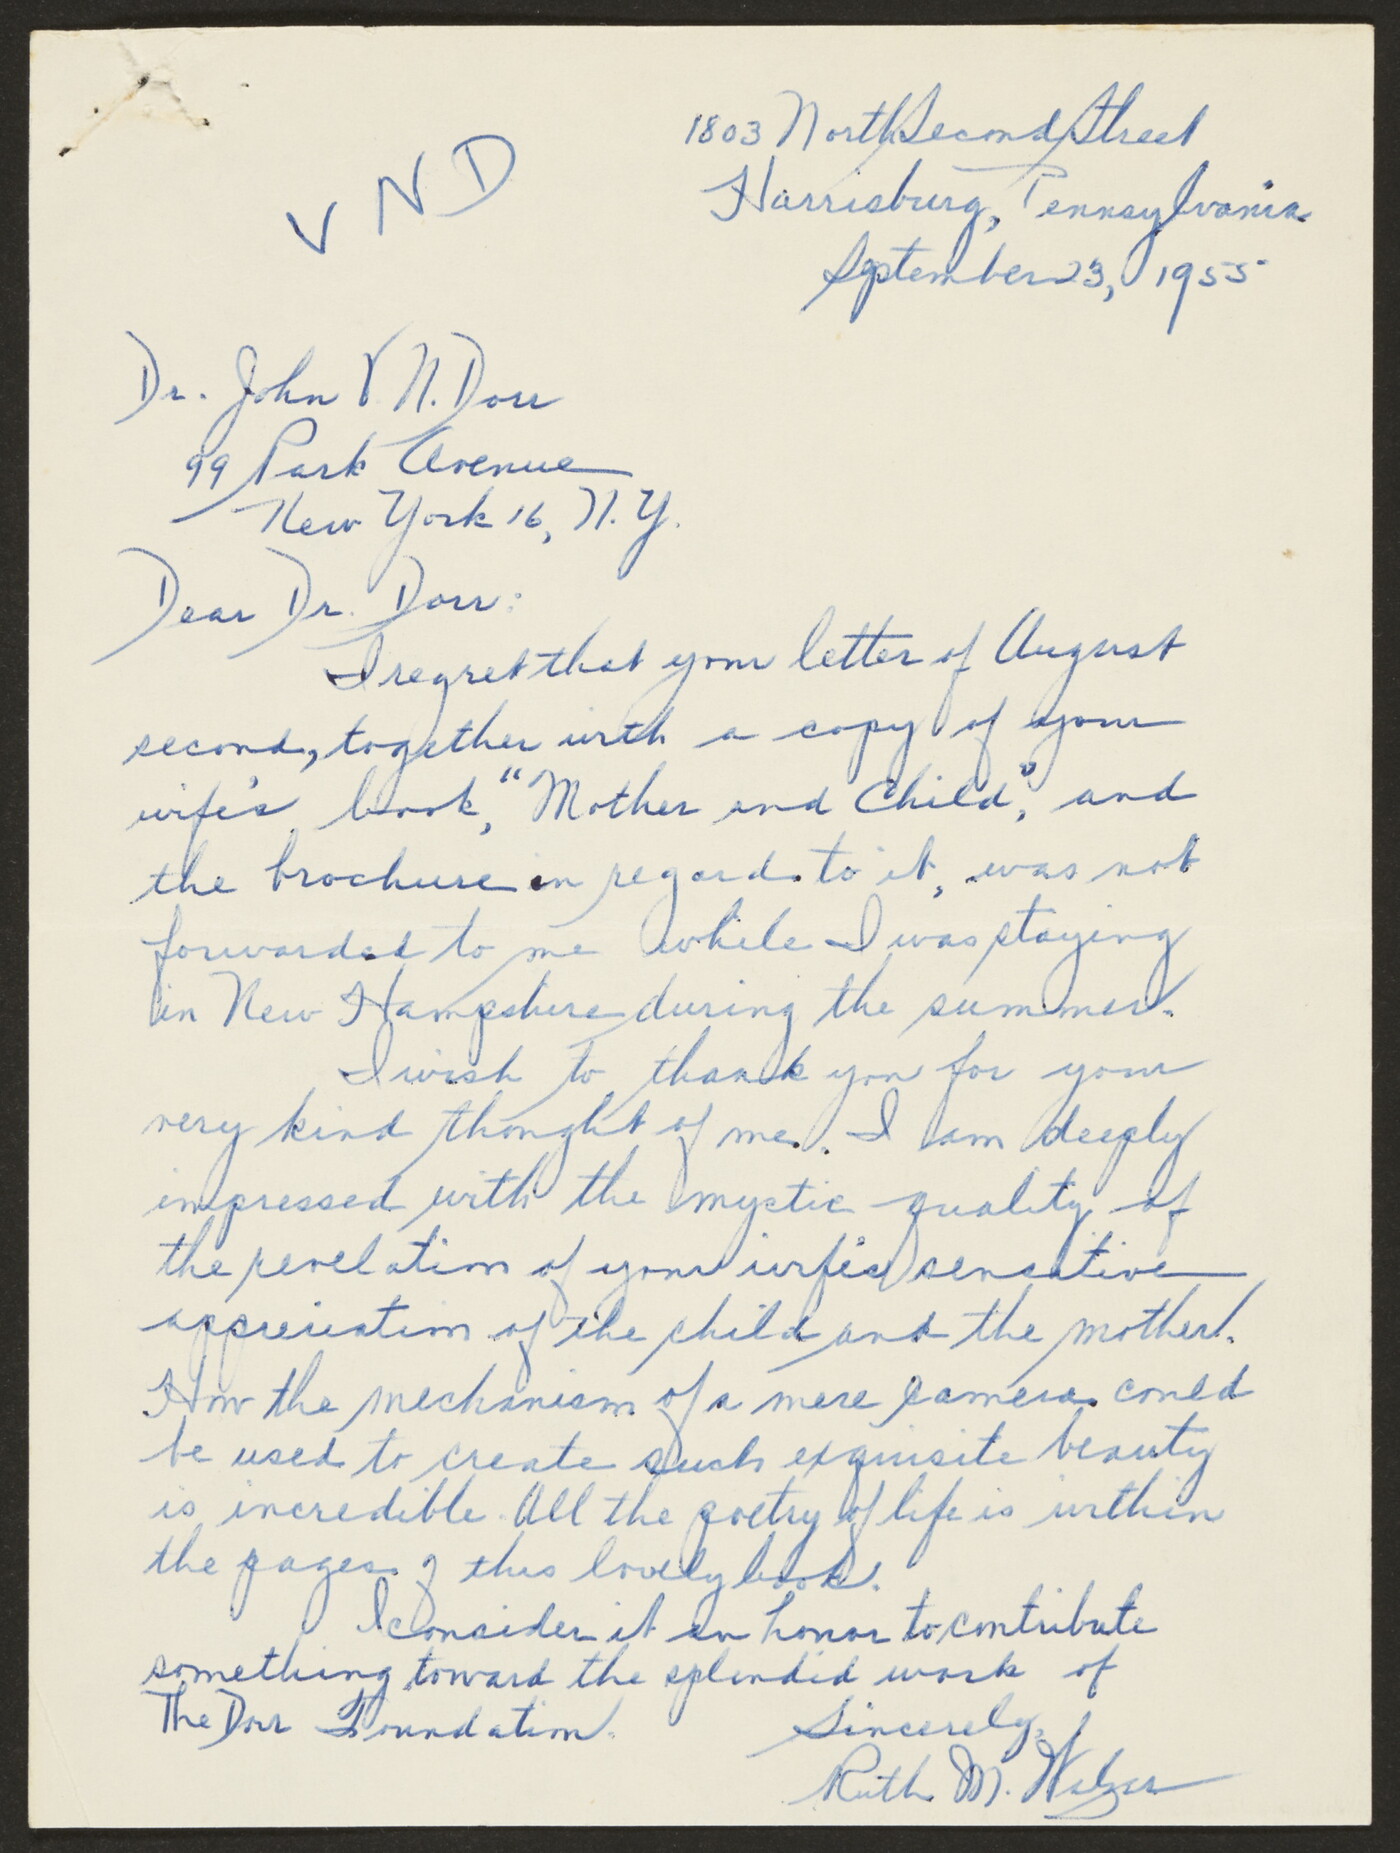 VND
1803 North Second Street
Harrisburg, Pennsylvania
September 23, 1955
Dr. John V N. Dorr
99 Park Avenue
New York 16, N.Y.
Dear Dr. Dorr:
I regret that your letter of August
second, together with a copy of your
wife's book, "Mother and Child", and
the brochure in regard to it, was not
forwarded to me while I was staying
in New Hampshire during the summer.
I wish to thank you for your
very kind thought of me. I am deeply
impressed with the mystic quality of
the revelation of your wife's sensative
appreciation of the child and the mother.
How the mechanism of a mere camera could
be used to create such exquisite beauty
is incredible. All the poetry of life is within
the pages of this lovely book.
I consider it an honor to contribute
something toward the splendid work of
The Dorr Foundation.
Sincerely,
Ruth M.